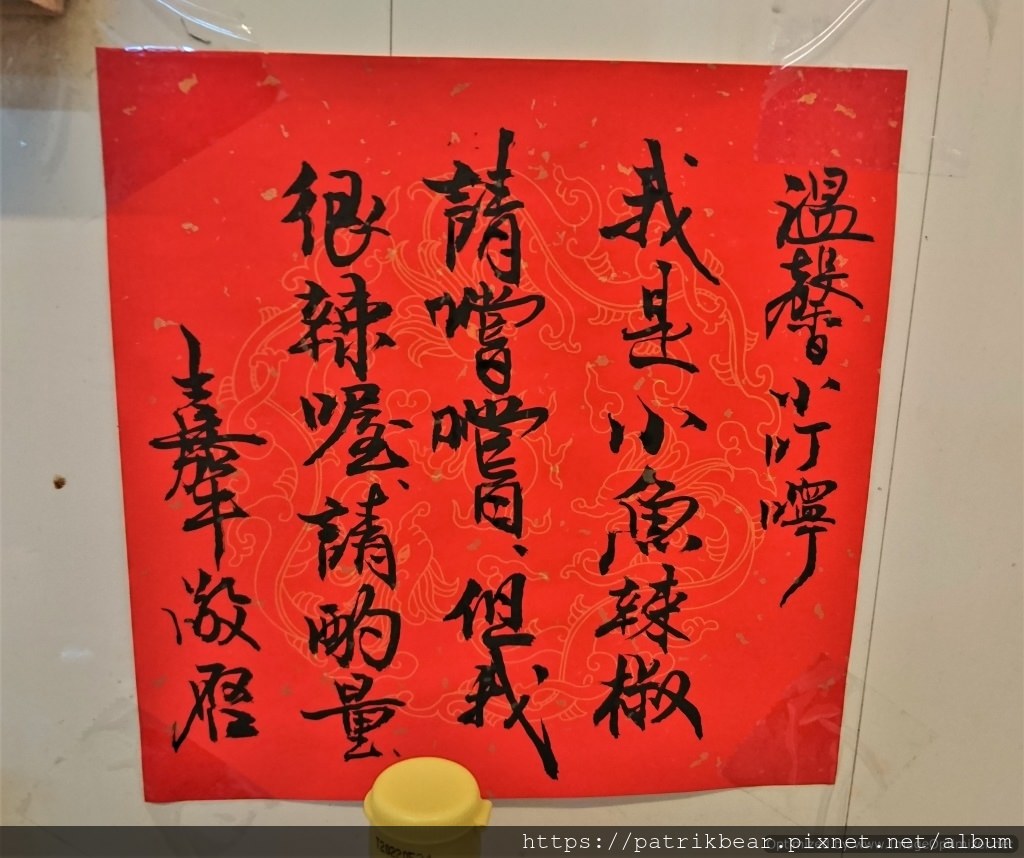 溫馨小叮嚀
我是小魚辣椒
請嚐嚐、但我
很辣喔請酌量、
敬啟
https://patrikbear.pixnet.net/album